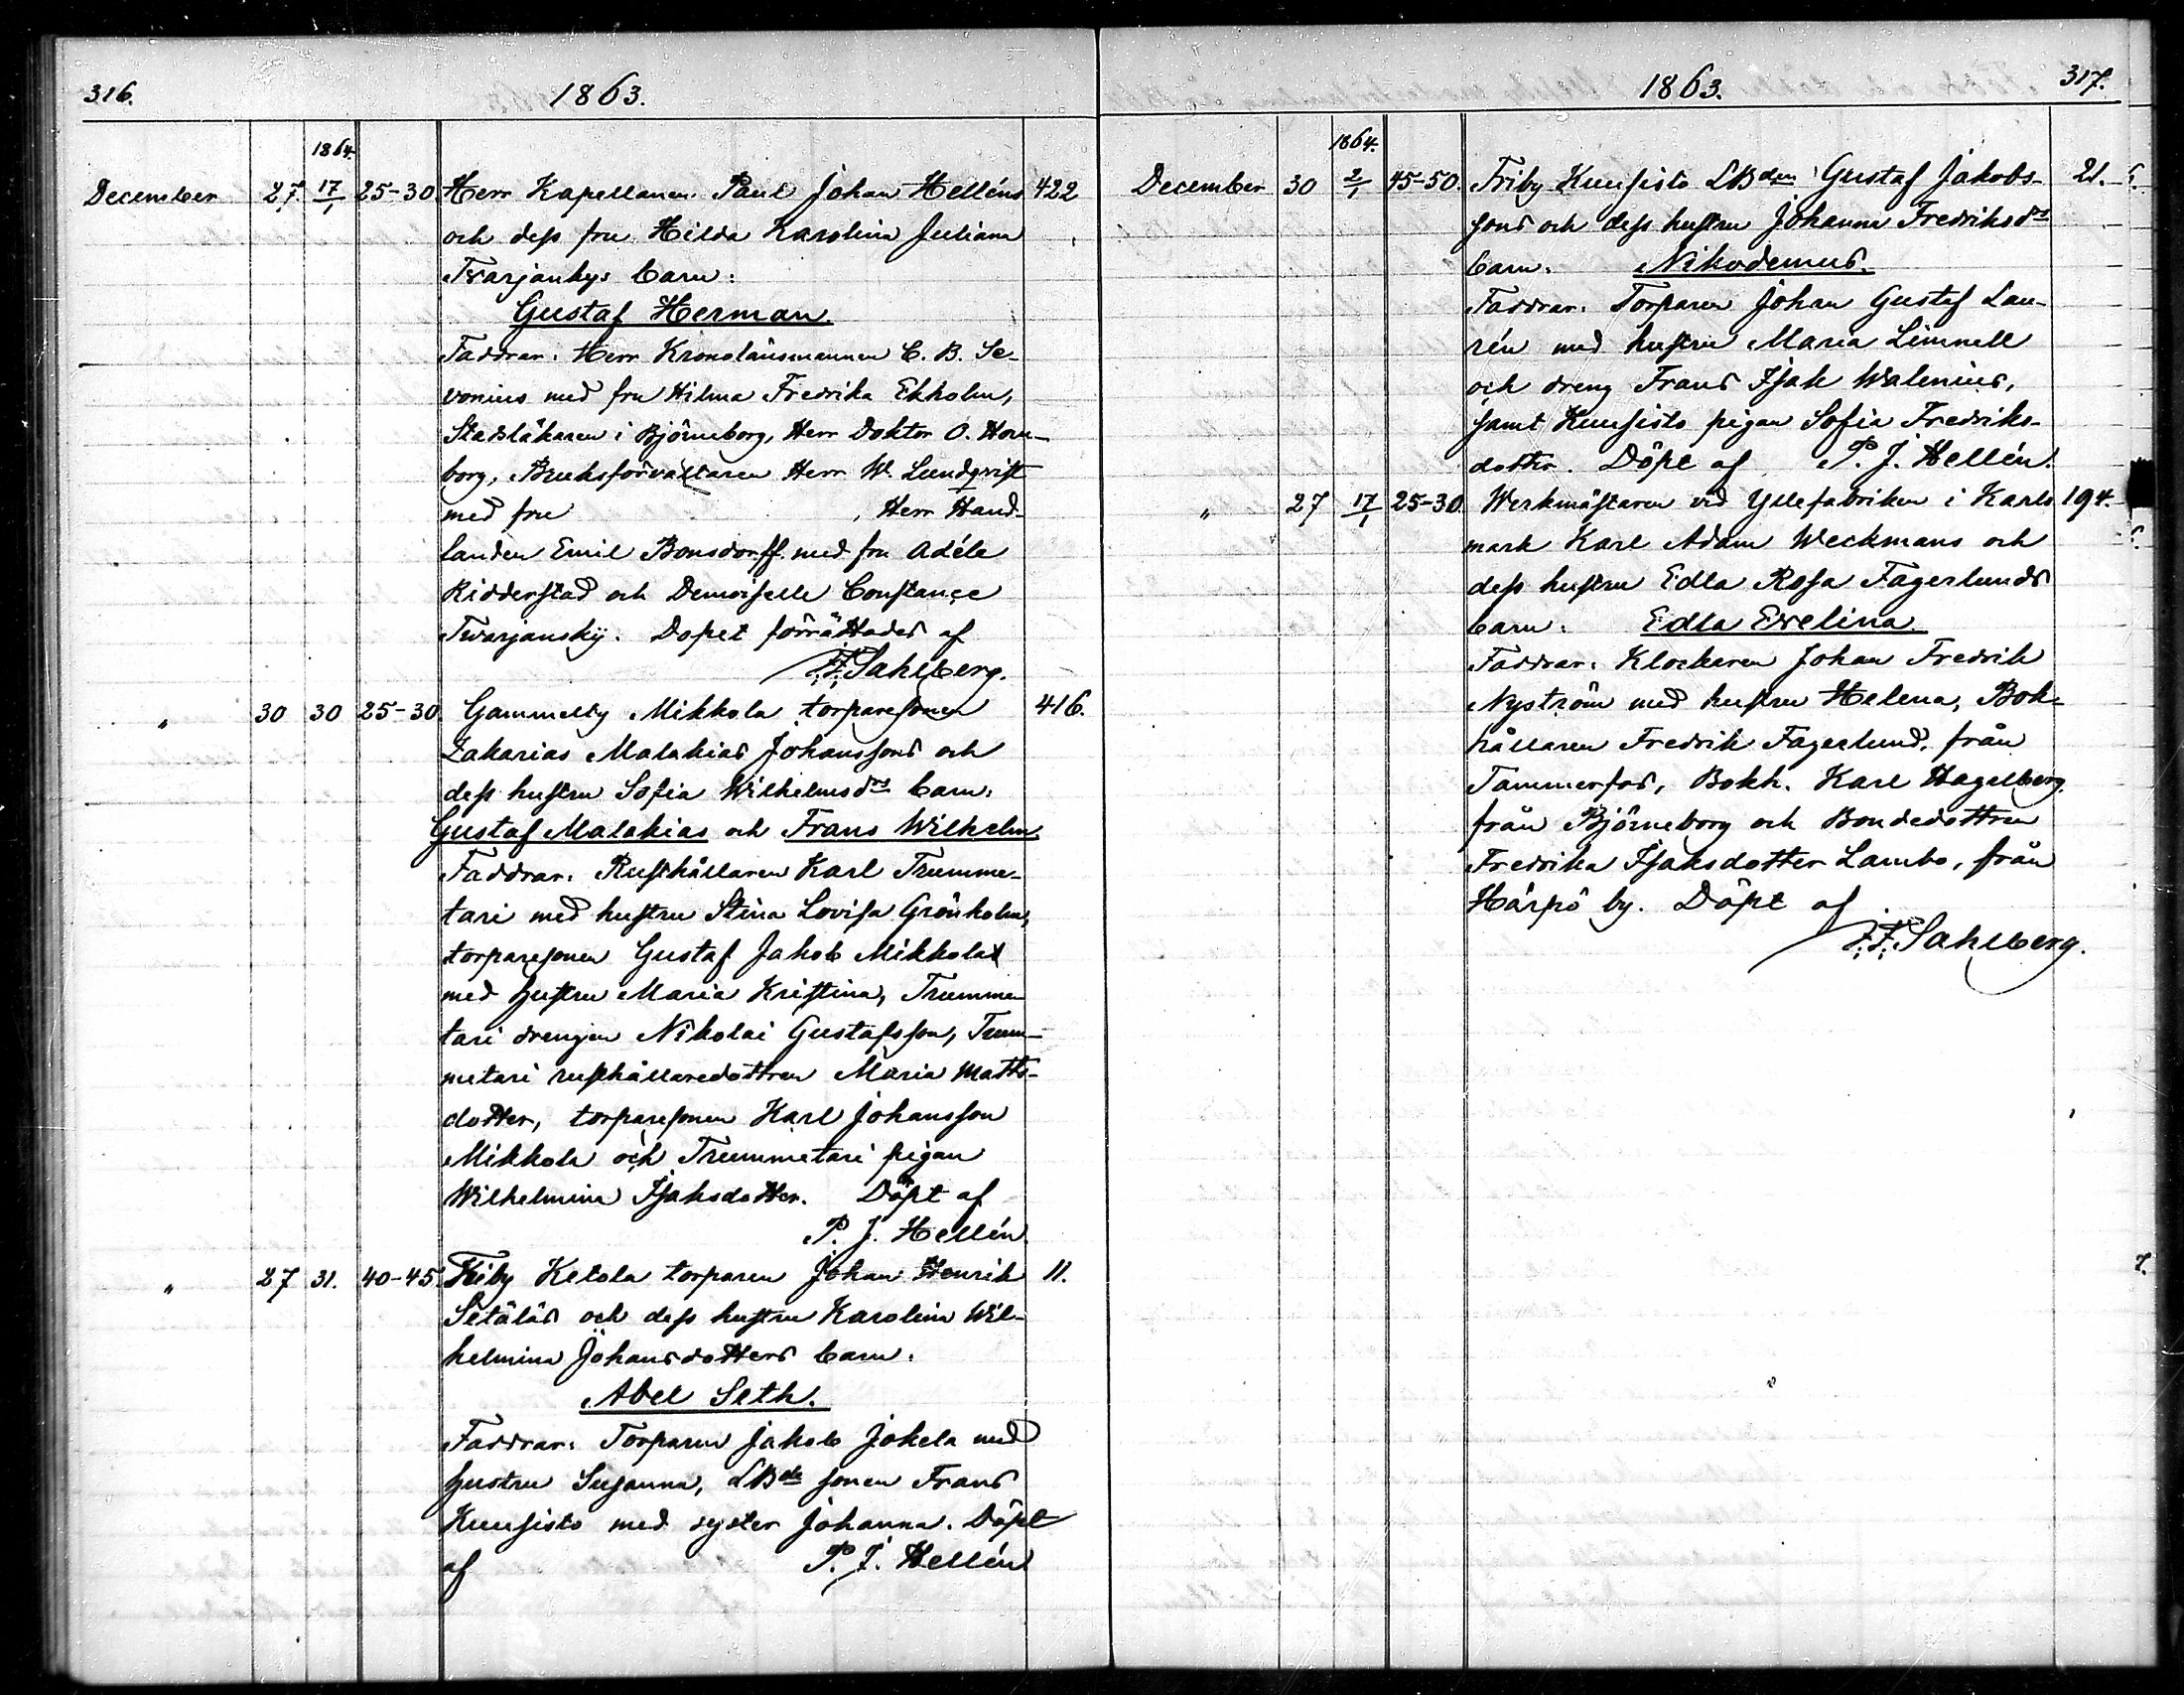 316.
1863.
1864.
December 27. 17/1 25-30 Herr Kapellanen Paul Johan Helléns 422
och dess fru Hilda Karolina Juliana
Twarjankys barn:
Gustaf Herman.
Faddrar: Herr Kronolänsmannen C. B. Se-
vonius med fru Hilma Fredrika Ekholm,
Stadsläkaren i Björneborg, Herr Doktor O. Horn-
borg, Bruksförvaltaren Herr W. Lundqvist
med fru , Herr Hand-
landen Emil Bonsdorff med fru Adéle
Ridderstad och Demoiselle Constance
Twarjansky. Dopet förrättades af
F. F. Sahlberg.
" 30 30 25-30. Gammelby Mikkola torparesonen 416.
Zakarias Malakias Johanssons och
dess hustru Sofia Wilhelmsdrs barn:
Gustaf Malakias och Frans Wilhelm
Faddrar: Rusthållaren Karl Trumme-
tari med hustru Stina Lovisa Grönholm,
torparesonen Gustaf Jakob Mikkola
med hustru Maria Kristina, Trumme-
tari drengen Nikolai Gustafsson, Trum-
metari rusthållaredottren Maria Matts-
dotter, torparesonen Karl Johansson
Mikkola och Trummetari pigan
Wilhelmina Isaksdotter. Döpt af
P. J. Hellén.
" 27 31. 40-45. Friby Ketola torparen Johan Henrik 11.
Setäläs och dess hustru Karolina Wil-
helmina Johansdotters barn:
Abel Seth.
Faddrar: Torparen Jakob Jokela med
hustru Susanna, LBde sonen Frans
Kuusisto med syster Johanna. Döpt
af P. J. Hellén
1863.
317.
1864.
December 30 2/1 45-50. Friby Kuusisto LBden Gustaf Jakobs- 21.
sons och dess hustru Johanna Fredriksdrs
barn: Nikodemus.
Faddrar: Torparen Johan Gustaf Lau-
rén med hustru Maria Limnell
och dreng Frans Isak Walenius,
samt Kuusisto pigan Sofia Fredriks-
dotter. Döpt af P. J. Hellén.
" 27 17/1 25-30. Werkmästaren vid Yllefabriken i Karls- 194.
mark Karl Adam Weckmans och
dess hustru Edla Rosa Fagerlunds
barn: Edla Evelina.
Faddrar: Klockaren Johan Fredrik
Nyström med hustru Helena, Bok-
hållaren Fredrik Fagerlund, från
Tammerfors, Bokh. Karl Hagelberg
från Björneborg och Bondedottren
Fredrika Isaksdotter Lambo, från
Hårpö by. Döpt af
F. F. Sahlberg.